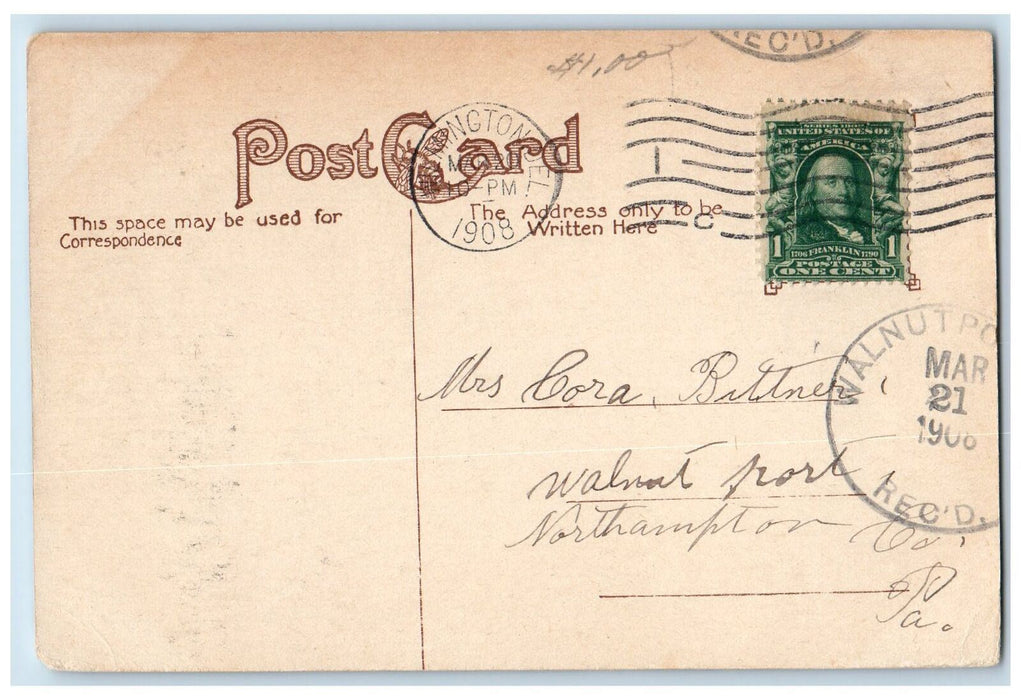 REC'D.
$1.00
Post Card
INGTON DEL
10-PM
1908
1
C
SERIES 1902
UNITED STATES OF
AMERICA
1706 FRANKLIN 1790
POSTAGE
1 ONE CENT 1
This space may be used for
Correspondence
The Address only to be
Written Here
WALNUTPO
MAR
21
1908
REC'D.
Mrs Cora Bittner,
Walnut port,
Northampton Co.
Pa.